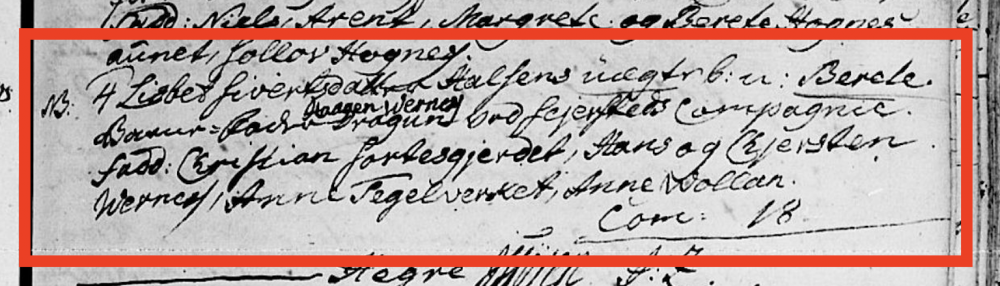 Fadd: Niels, Arent, Margrete og Berete Hognes
aunet, Hognes.
NB: 4 Lisbet Sivertsdatter Halsens uægte b: n: Berete.
Haagen Wernes
Barne-Fader Dragun ved Compagnie.
Fadd: Christian fortesgjerdet, Hans og Chjersten
Wernes, Anne Tegelverket, Anne Wollan.
Com: 18
Hegre